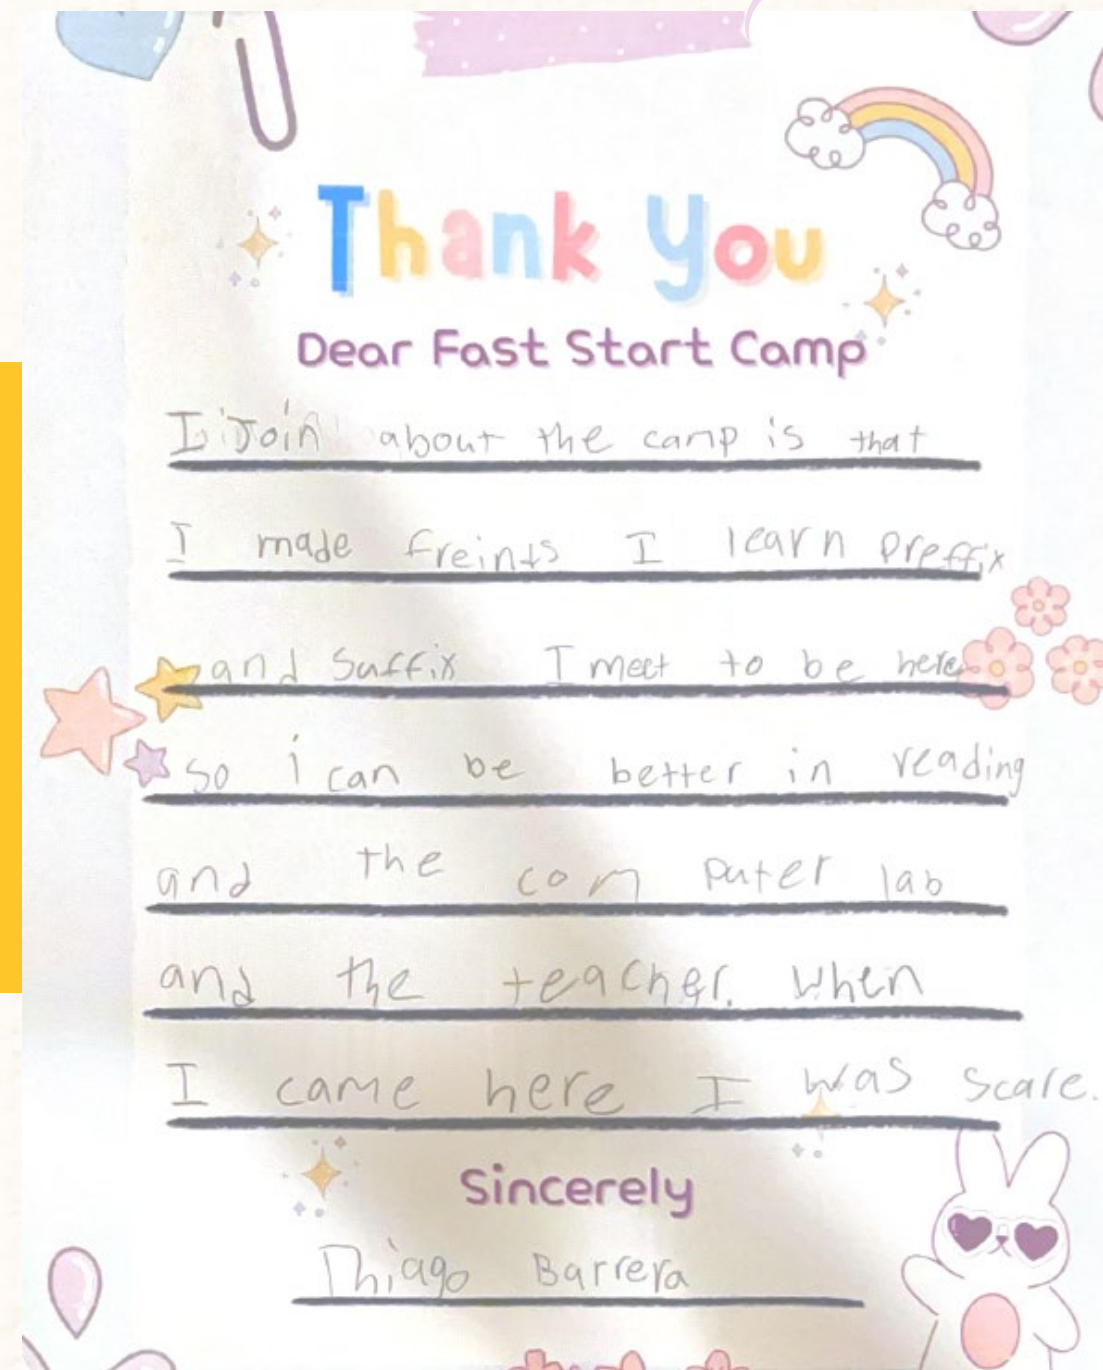 Thank You
Dear Fast Start Camp
I Join about the camp is that
I made freints I learn preffix
and Suffix I meet to be here
so i can be better in reading
and the com puter lab
and the teacher. When
I came here I was scare.
Sincerely
Thiago Barrera